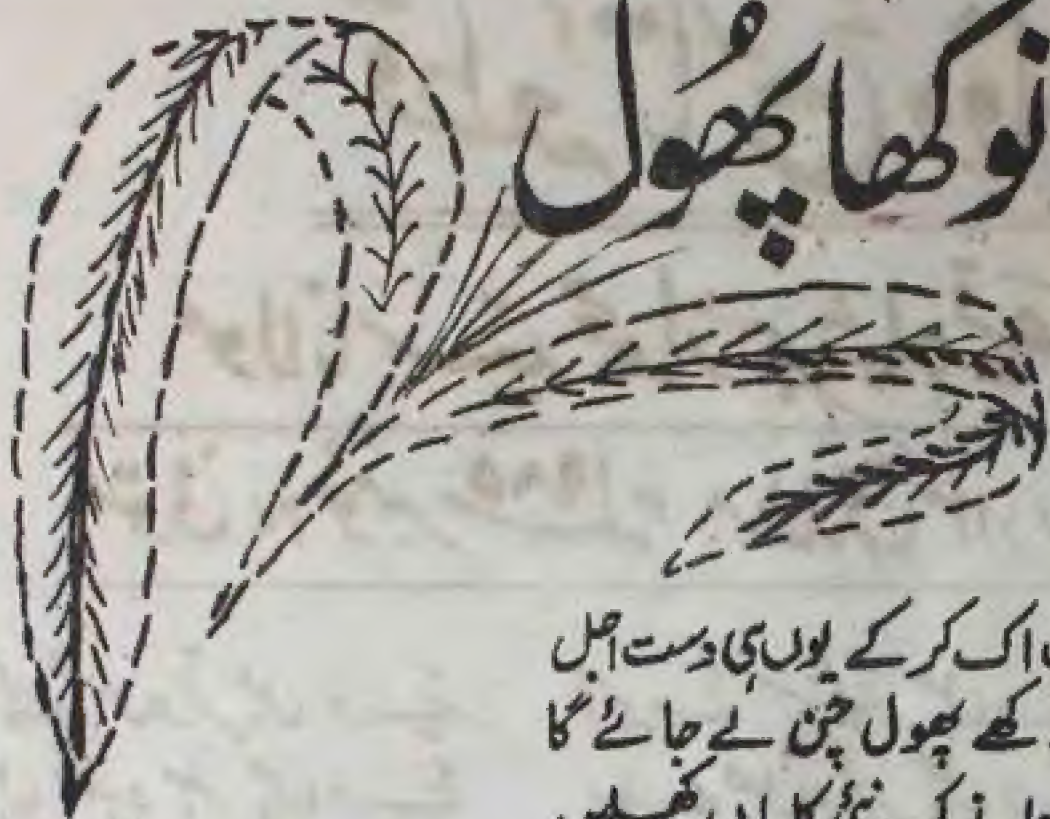 نوکھا پھول
اک کر کے یوں ہی دست اجل
کھے پھول چن لے جائے گا